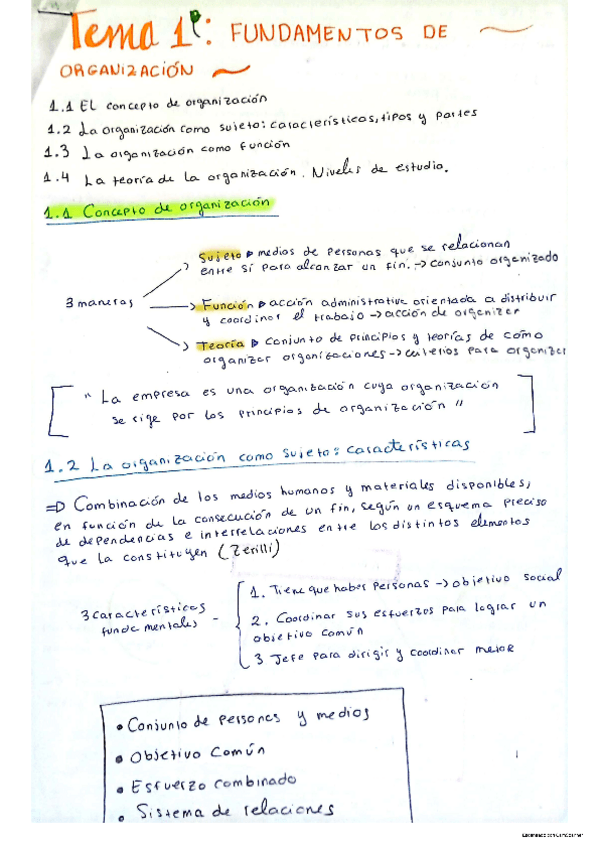 Tema 1º: FUNDAMENTOS DE
ORGANIZACIÓN
1.1 El concepto de organización
1.2 La organización como sujeto: características, tipos y partes
1.3 La organización como función
1.4 La teoría de la organización. Niveles de estudio.
1.1 Concepto de organización
Sujeto → medios de personas que se relacionan
entre sí para alcanzar un fin. → conjunto organizado
3 maneras
Función → acción administrativa orientada a distribuir
y coordinar el trabajo → acción de organizar
Teoría → conjunto de principios y teorías de cómo
organizar organizaciones → criterios para organizar
" La empresa es una organización cuya organización
se rige por los principios de organización "
1.2 La organización como sujeto: características
⇒ Combinación de los medios humanos y materiales disponibles,
en función de la consecución de un fin, según un esquema preciso
de dependencias e interrelaciones entre los distintos elementos
que la constituyen (Zerilli)
3 características
fundamentales -
1. Tiene que haber personas → objetivo social
2. Coordinar sus esfuerzos para lograr un
objetivo común
3 Jefe para dirigir y coordinar mejor
• Conjunto de personas y medios
• Objetivo común
• Esfuerzo combinado
• Sistema de relaciones